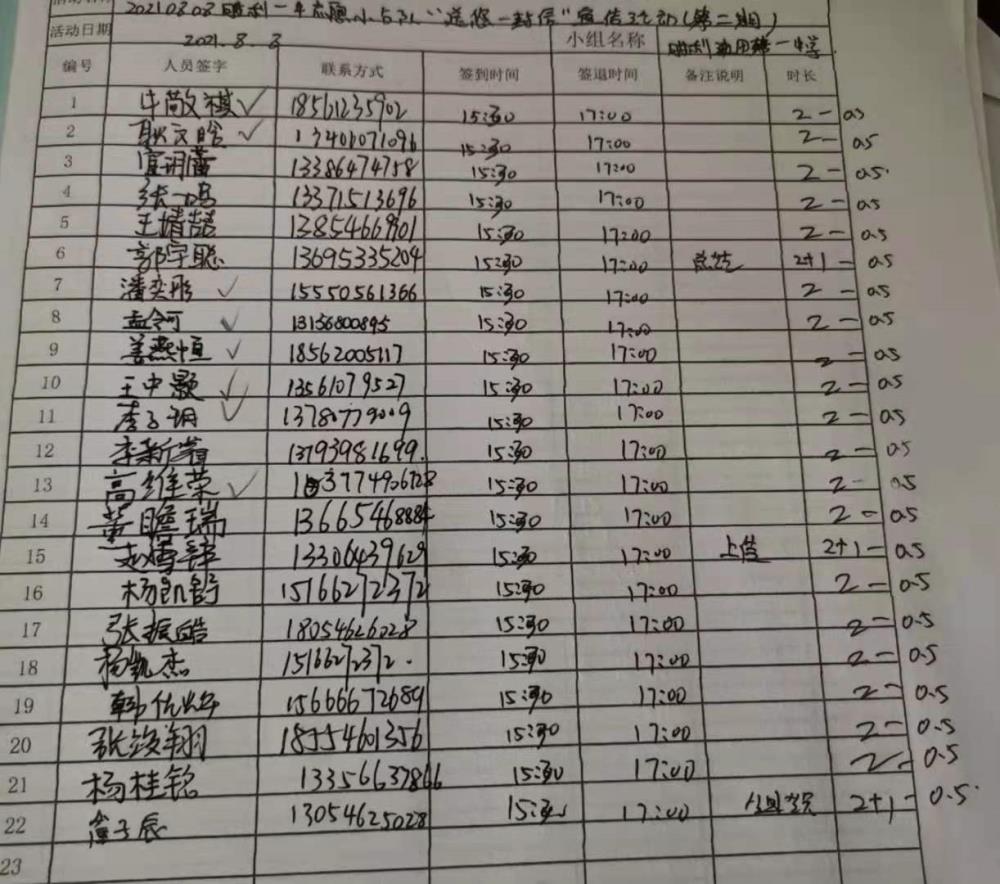 20210808胜利一中志愿小分队"送您一封信"宣传活动(第二期)
活动日期 2021.8.8 小组名称 胜利油田第一中学
编号 人员签字 联系方式 签到时间 签退时间 备注说明 时长
1 牛敬祺✓ 18561235902 15:30 17:00 2-0.5
2 耿文晗✓ 13401071096 15:30 17:00 2-0.5
3 13386474758 15:30 17:00 2-0.5
4 张一鸣 13371513696 15:30 17:00 2-0.5
5 王婧喆 13854669901 15:30 17:00 2-0.5
6 郭宇聪 13695335204 15:30 17:00 总结 2+1-0.5
7 潘奕彤✓ 15550561366 15:30 17:00 2-0.5
8 孟何✓ 13156800895 15:30 17:00 2-0.5
9 姜燕恒✓ 18562005117 15:30 17:00 2-0.5
10 王中灏✓ 13561079527 15:30 17:00 2-0.5
11 李子玥✓ 13780779009 15:30 17:00 2-0.5
12 李新 13793981699. 15:30 17:00 2-0.5
13 高维荣✓ 15:30 17:00 2-0.5
14 董瞻瑞 13665468884 15:30 17:00 2-0.5
15 13306439629 15:30 17:00 上传 2+1-0.5
16 杨凯舒 15166272372 15:30 17:00 2-0.5
17 张振皓 18054626028 15:30 17:00 2-0.5
18 杨凯杰 15166272372. 15:30 17:00 2-0.5
19 韩优 15666672689 15:30 17:00 2-0.5
20 张竣翔 18554601356 15:30 17:00 2-0.5
21 杨桂铭 13356637866 15:30 17:00 2-0.5
22 子辰 13054625028 15:30 17:00 2+1-0.5
23